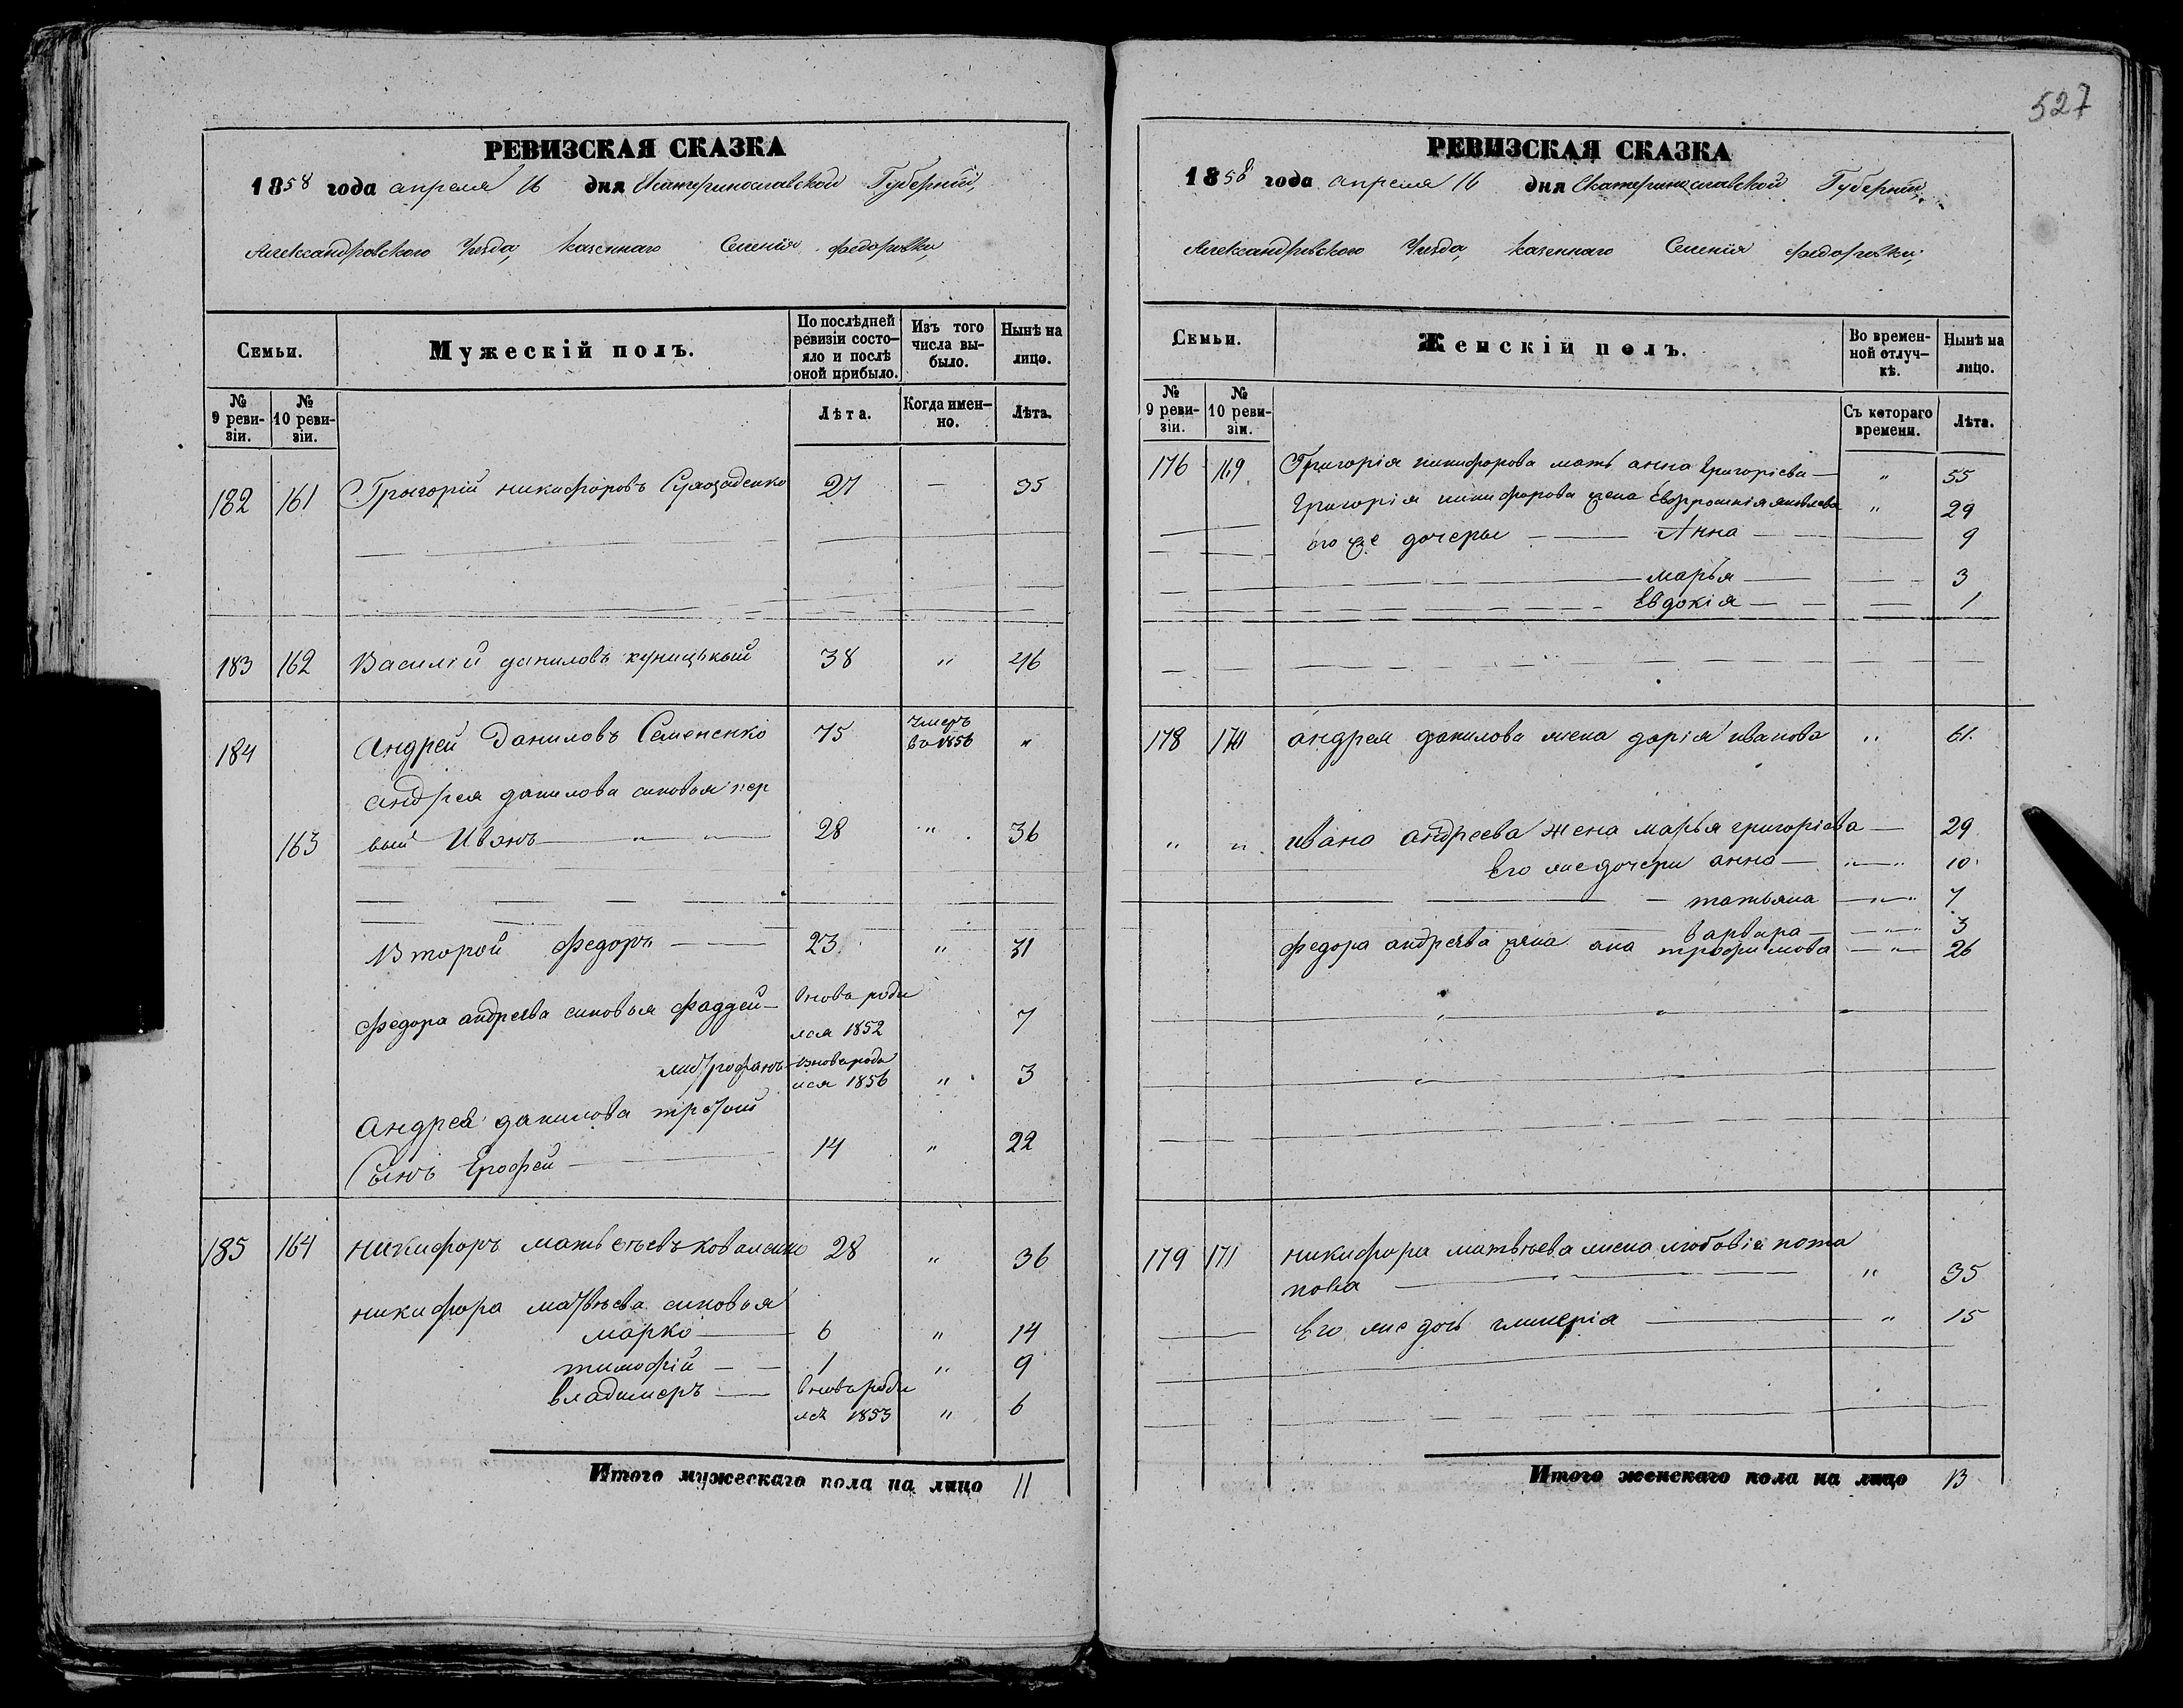 РЕВИЗСКАЯ СКАЗКА
1858 года апреля 16 дня Екатеринославской Губернии,
Александровского Уезда, казеннаго Селения Федоровки,
Семьи.
Мужескій полъ.
По послѣдней ревизіи состояло и послѣ оной прибыло.
Изъ того числа выбыло.
Нынѣ на лицо.
№ 9 ревизіи.
№ 10 ревизіи.
Лѣта.
Когда именно.
Лѣта.
182 161 Григорій никифоровъ 27 — 35
183 162 Василій даниловъ 38 " 46
184 Андрей Даниловъ Семененко 75 умеръ в 1856 "
андрея данилова синовья пер
163 вый Иванъ — " — 28 " 36
Второй Федоръ — 23 " 31
Федора андреева синовья Фаддей — вновь роди
лся 1852 7
митрофанъ вновь роди
лся 1856 " 3
Андрея данилова третий
Сынъ Ерофей — 14 " 22
185 164 никифоръ матвеевъ коваленко 28 " 36
никифора матвеева синовья
марко — 6 " 14
тимофій — 1 " 9
владимеръ — вновь роди
лся 1853 " 6
Итого мужескаго пола на лицо 11
527
РЕВИЗСКАЯ СКАЗКА
1858 года апреля 16 дня Екатеринославской Губернии,
Александровского Уезда, казеннаго Селения Федоровки,
Семьи.
Женскій полъ.
Во временной отлучкѣ.
Нынѣ на лицо.
№ 9 ревизіи.
№ 10 ревизіи.
Съ котораго времени.
Лѣта.
176 169 Григорія никифорова мать анна григоріева — " 55
григорія никифорова жена Евфросинія яковлева " 29
его же дочеры — Анна — 9
марья — 3
Евдокія — 1
178 170 андрея данилова жена дарія иванова " 61
" " ивана андреева жена марья григоріева — 29
Его же дочери анна — " — " 10
татьяна — " 7
варвара — " 3
федора андреева жена ана трофимова — " — 26
179 171 никифора матвеева жена любовія пота
пова — " 35
Его же дочь гликерія — " 15
Итого женскаго пола на лицо 13